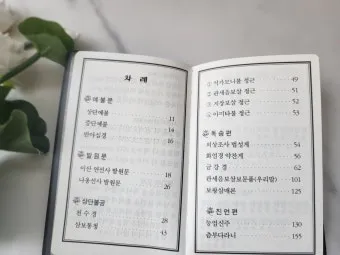 차 례
예불문
상단예불 11
중단예불 14
반야심경 16
발원문
이산 연선사 발원문 18
나옹선사 발원문 26
상단불공
천수경 28
삼보통청 43
① 석가모니불 정근 49
② 관세음보살 정근 51
③ 지장보살 정근 53
④ 아미타불 정근 52
독송편
의상조사 법성게 54
화엄경 약찬게 58
금강경 65
관세음보살보문품(우리말)
보왕삼매론 125
진언편
능엄신주 130
츰부다라니 155